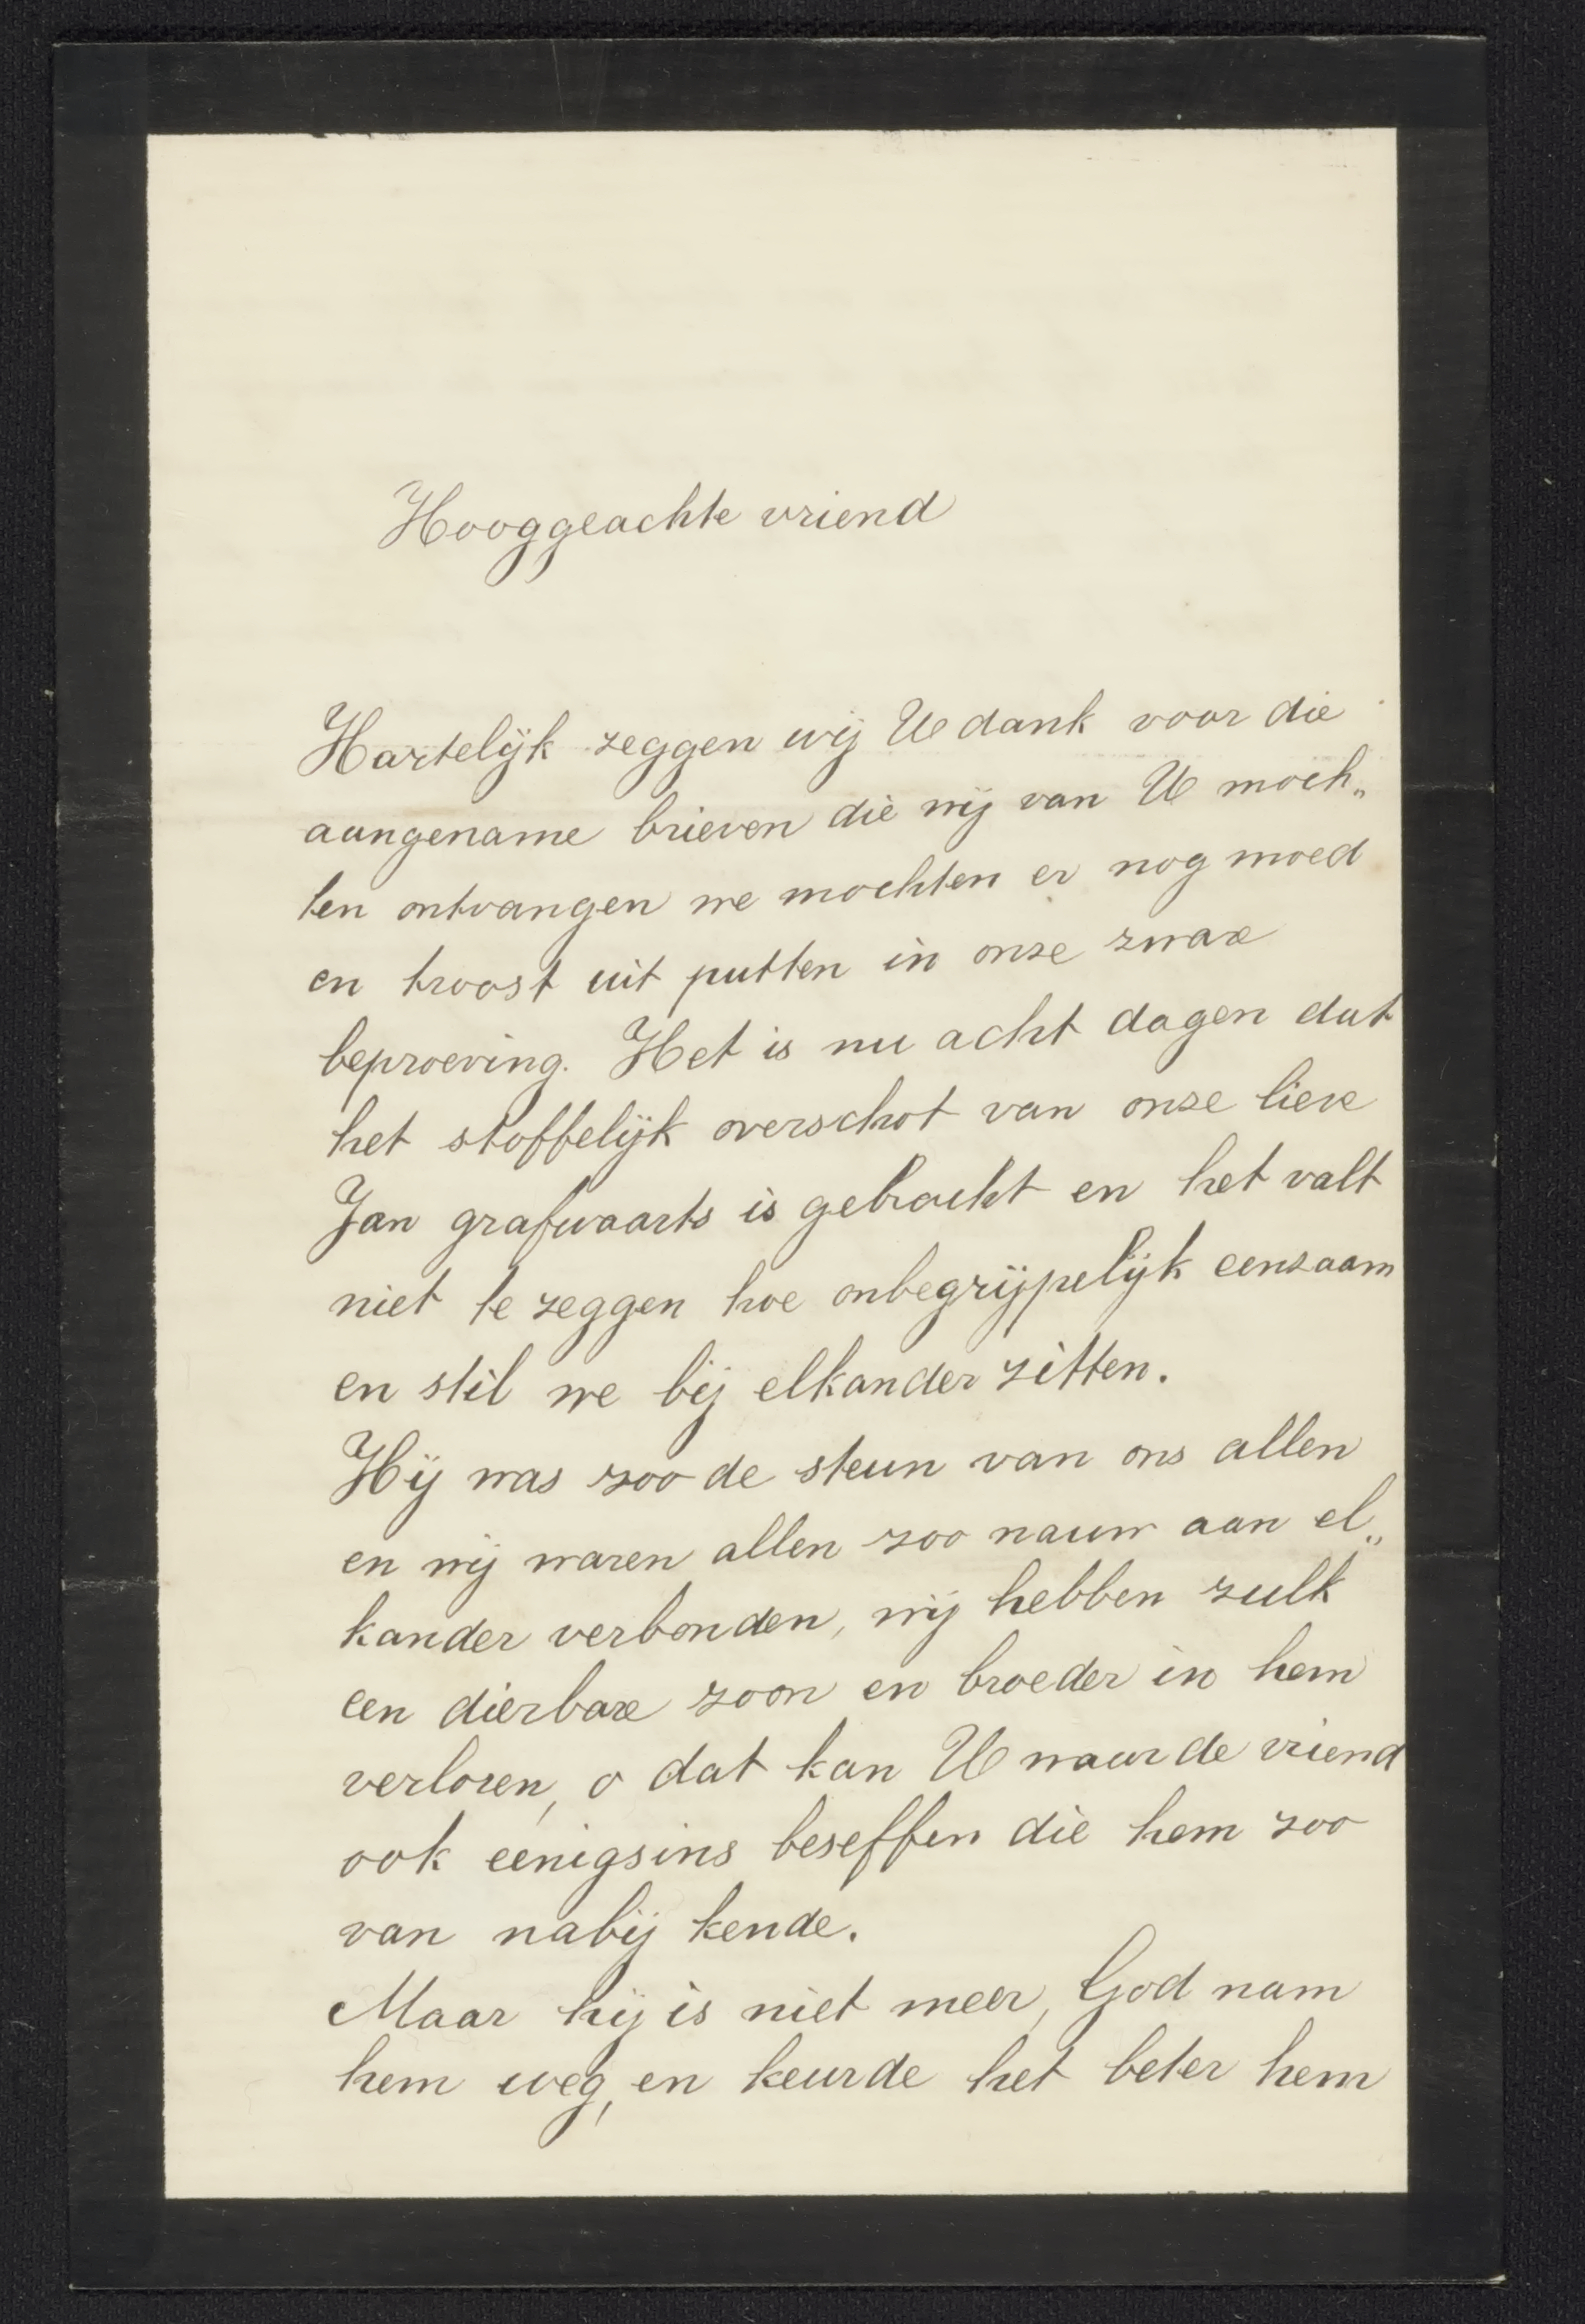 Hooggeachte vriend
Hartelijk zeggen wij U dank voor die
aangename brieven die wij van U moch„
ten ontvangen we mochten er nog moed
en troost uit putten in onze zware
beproeving. Het is nu acht dagen dat
het stoffelijk overschot van onze lieve
Jan grafwaarts is gebracht en het valt
niet te zeggen hoe onbegrijpelijk eenzaam
en stil we bij elkander zitten.
Hij was zoo de steun van ons allen
en wij waren allen zoo nauw aan el„
kander verbonden, wij hebben zulk
een dierbare zoon en broeder in hem
verloren, o dat kan U waarde vriend
ook eenigsins beseffen die hem zoo
van nabij kende.
Maar hij is niet meer, God nam
hem weg, en keurde het beter hem